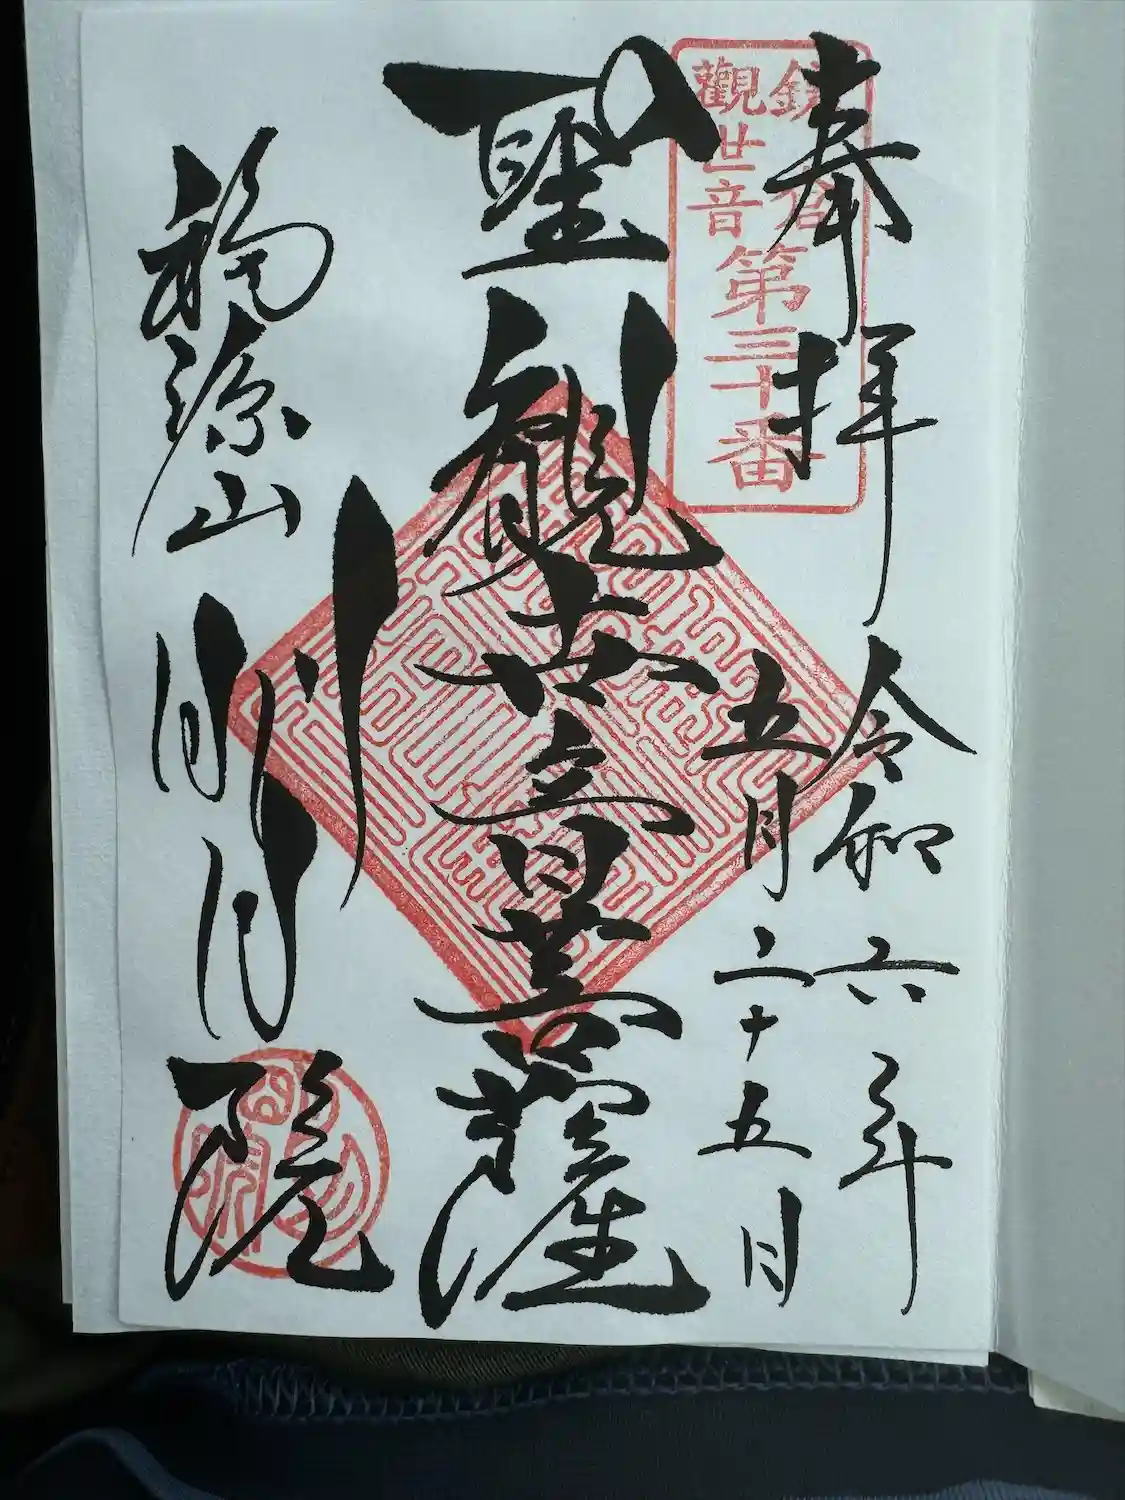 奉拝
令和六年
五月二十五日
鎌倉
觀世音
第三十番
聖観世音菩薩
福源山
明月院